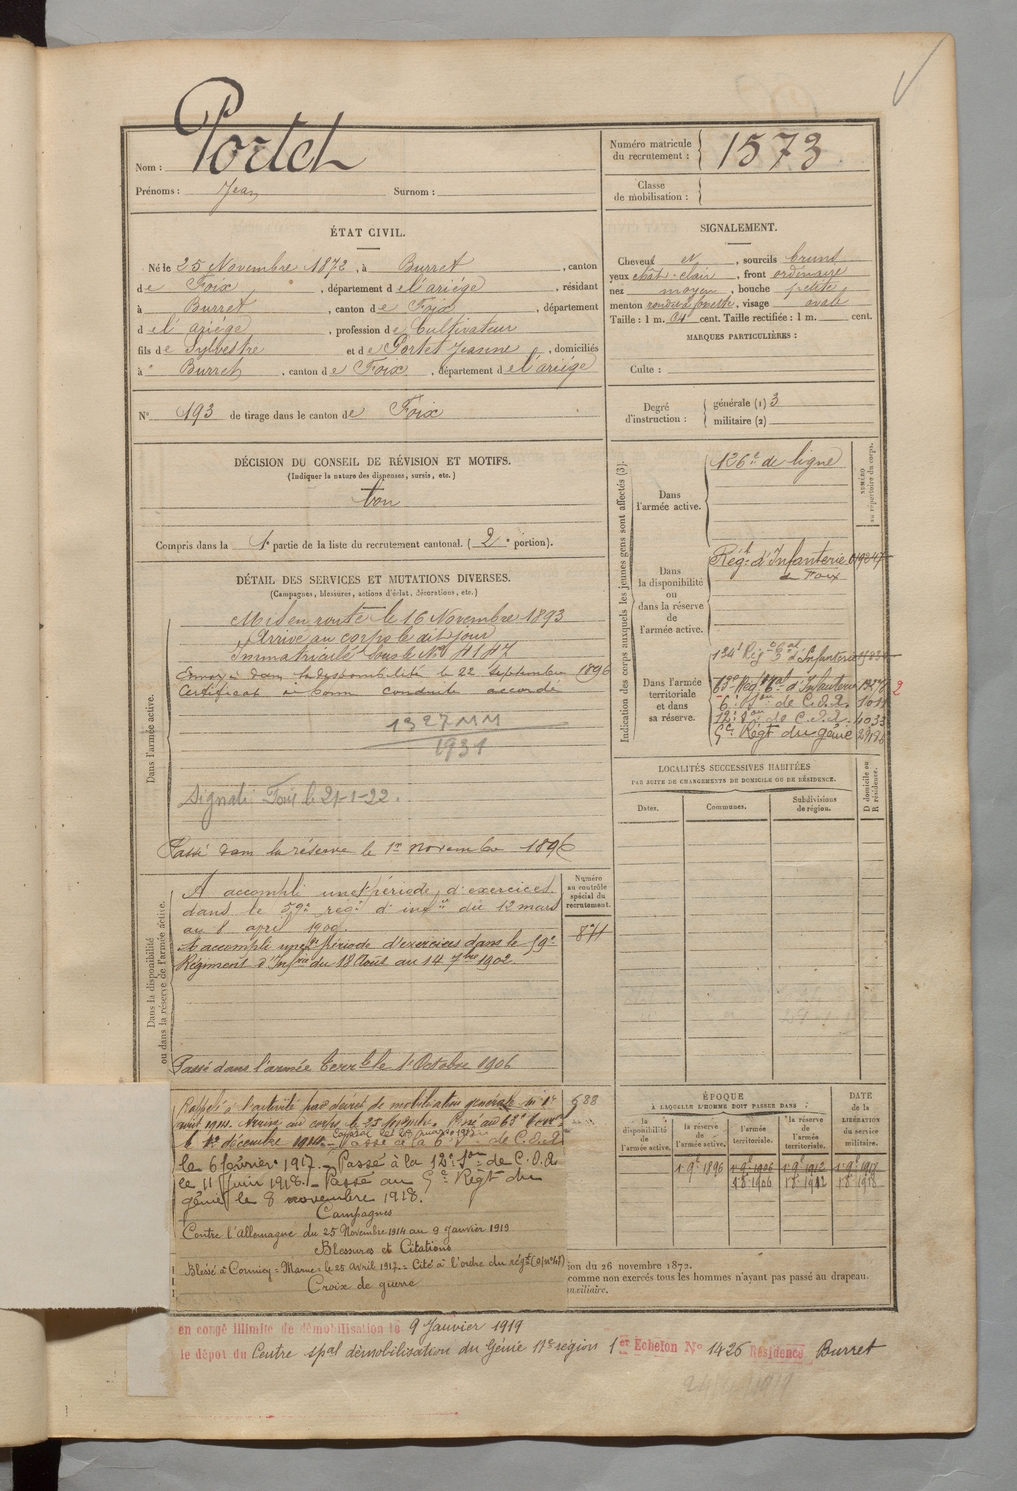 Nom : Portet
Prénoms : Jean Surnom :
Numéro matricule
du recrutement : 1573
Classe
de mobilisation :
ÉTAT CIVIL.
Né le 25 Novembre 1872, à Burret, canton
de Foix, département de l'ariège, résidant
à Burret, canton de Foix, département
de l'ariège, profession de Cultivateur
fils de Sylvestre et de Portet Jeanne, domiciliés
à Burret, canton de Foix, département de l'ariége
N° 193 de tirage dans le canton de Foix
SIGNALEMENT.
Cheveux et, sourcils bruns
yeux chât. clair, front ordinaire
nez moyen, bouche petite
menton rond, visage ovale
Taille : 1 m. cent. Taille rectifiée : 1 m. cent.
MARQUES PARTICULIÈRES :
Culte :
Degré
d'instruction :
générale (1) 3
militaire (2)
DÉCISION DU CONSEIL DE RÉVISION ET MOTIFS.
(Indiquer la nature des dispenses, sursis, etc.)
bon
Compris dans la 1e partie de la liste du recrutement cantonal. (2e portion).
DÉTAIL DES SERVICES ET MUTATIONS DIVERSES.
(Campagnes, blessures, actions d'éclat, décorations, etc.)
Dans l'armée active.
Mis en route le 16 Novembre 1893
Arrivé au corps le dit jour
Immatriculé sous le No 4147
Envoyé dans la disponibilité le 22 Septembre 1896
Certificat de bonne conduite accordé
1327 MM
1931
Signalé Foix le 21-1-22.
Passé dans la réserve le 1er novembre 1896
Dans la disponibilité
ou dans la réserve de l'armée active.
Numéro
au contrôle
spécial du
recrutement.
811
A accompli une 1e période d'exercices
dans le 59e rég. d'infie du 12 mars
au 8 april 1900.
A accompli une 2e période d'exercices dans le 59e
Régiment d'Infie du 18 Août au 14 7bre 1902.
Passé dans l'armée terrle le 1 Octobre 1906
588
Rappelé à l'activité par décret de mobilisation générale du 1er
août 1914. Arrivé au corps le 25 novembre. Passé au 63e
le 1er décembre 1914. Passé à la 6e Son de C.O.A
le 6 février 1917. Passé à la 12e Son de C.O.A
le 11 Juin 1918. Passé au 5e Régt du
génie le 8 novembre 1918.
Campagnes
Contre l'Allemagne du 25 Novembre 1914 au 9 Janvier 1919
Blessures et Citations
Blessé à Cormicy = Marne = le 25 Avril 1917 = Cité à l'ordre du régt (
Croix de guerre
Indication des corps auxquels les jeunes gens sont affectés (3).
NUMÉRO
au répertoire du corps.
Dans
l'armée active.
126e de ligne
Dans
la disponibilité
ou
dans la réserve
de
l'armée active.
Régt d'Infanterie
de Foix
Dans l'armée
territoriale
et dans
sa réserve.
134e Rég. d'Infanterie
63e Régt d'Infanterie
6e Son de C.O.A. 1011
12e Son de C.O.A. 4033
5e Régt du génie
2
LOCALITÉS SUCCESSIVES HABITÉES
PAR SUITE DE CHANGEMENTS DE DOMICILE OU DE RÉSIDENCE.
Dates.
Communes.
Subdivisions
de région.
D domicile ou
R résidence.
ÉPOQUE
À LAQUELLE L'HOMME DOIT PASSER DANS :
la
disponibilité
de
l'armée active.
la réserve
de
l'armée active.
l'armée
territoriale.
la réserve
de
l'armée
territoriale.
DATE
de la
LIBÉRATION
du service
militaire.
1 9e 1896 1 9e 1906 1 9e 1912 1 9e 1918
18 1906 18 1912 18 1918
ion du 26 novembre 1872.
comme non exercés tous les hommes n'ayant pas passé au drapeau.
uxiliaire.
en congé illimité de démobilisation le 9 Janvier 1919
le dépôt du Centre spal démobilisation du Génie 17e région 1er Echelon No 1426 Résidence Burret